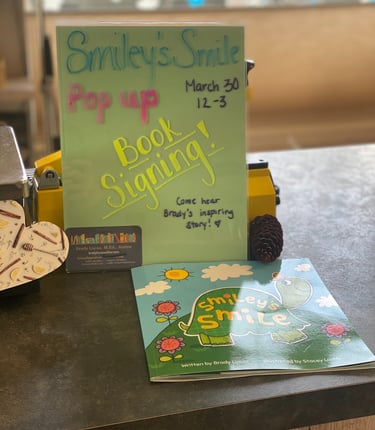 Smiley's Smile
Pop up
March 30
12-3
Book
Signing!
Come hear
Brady's inspiring
story!
Smiley's
Smile
Written by Brady Lucas
Illustrated by Stacey